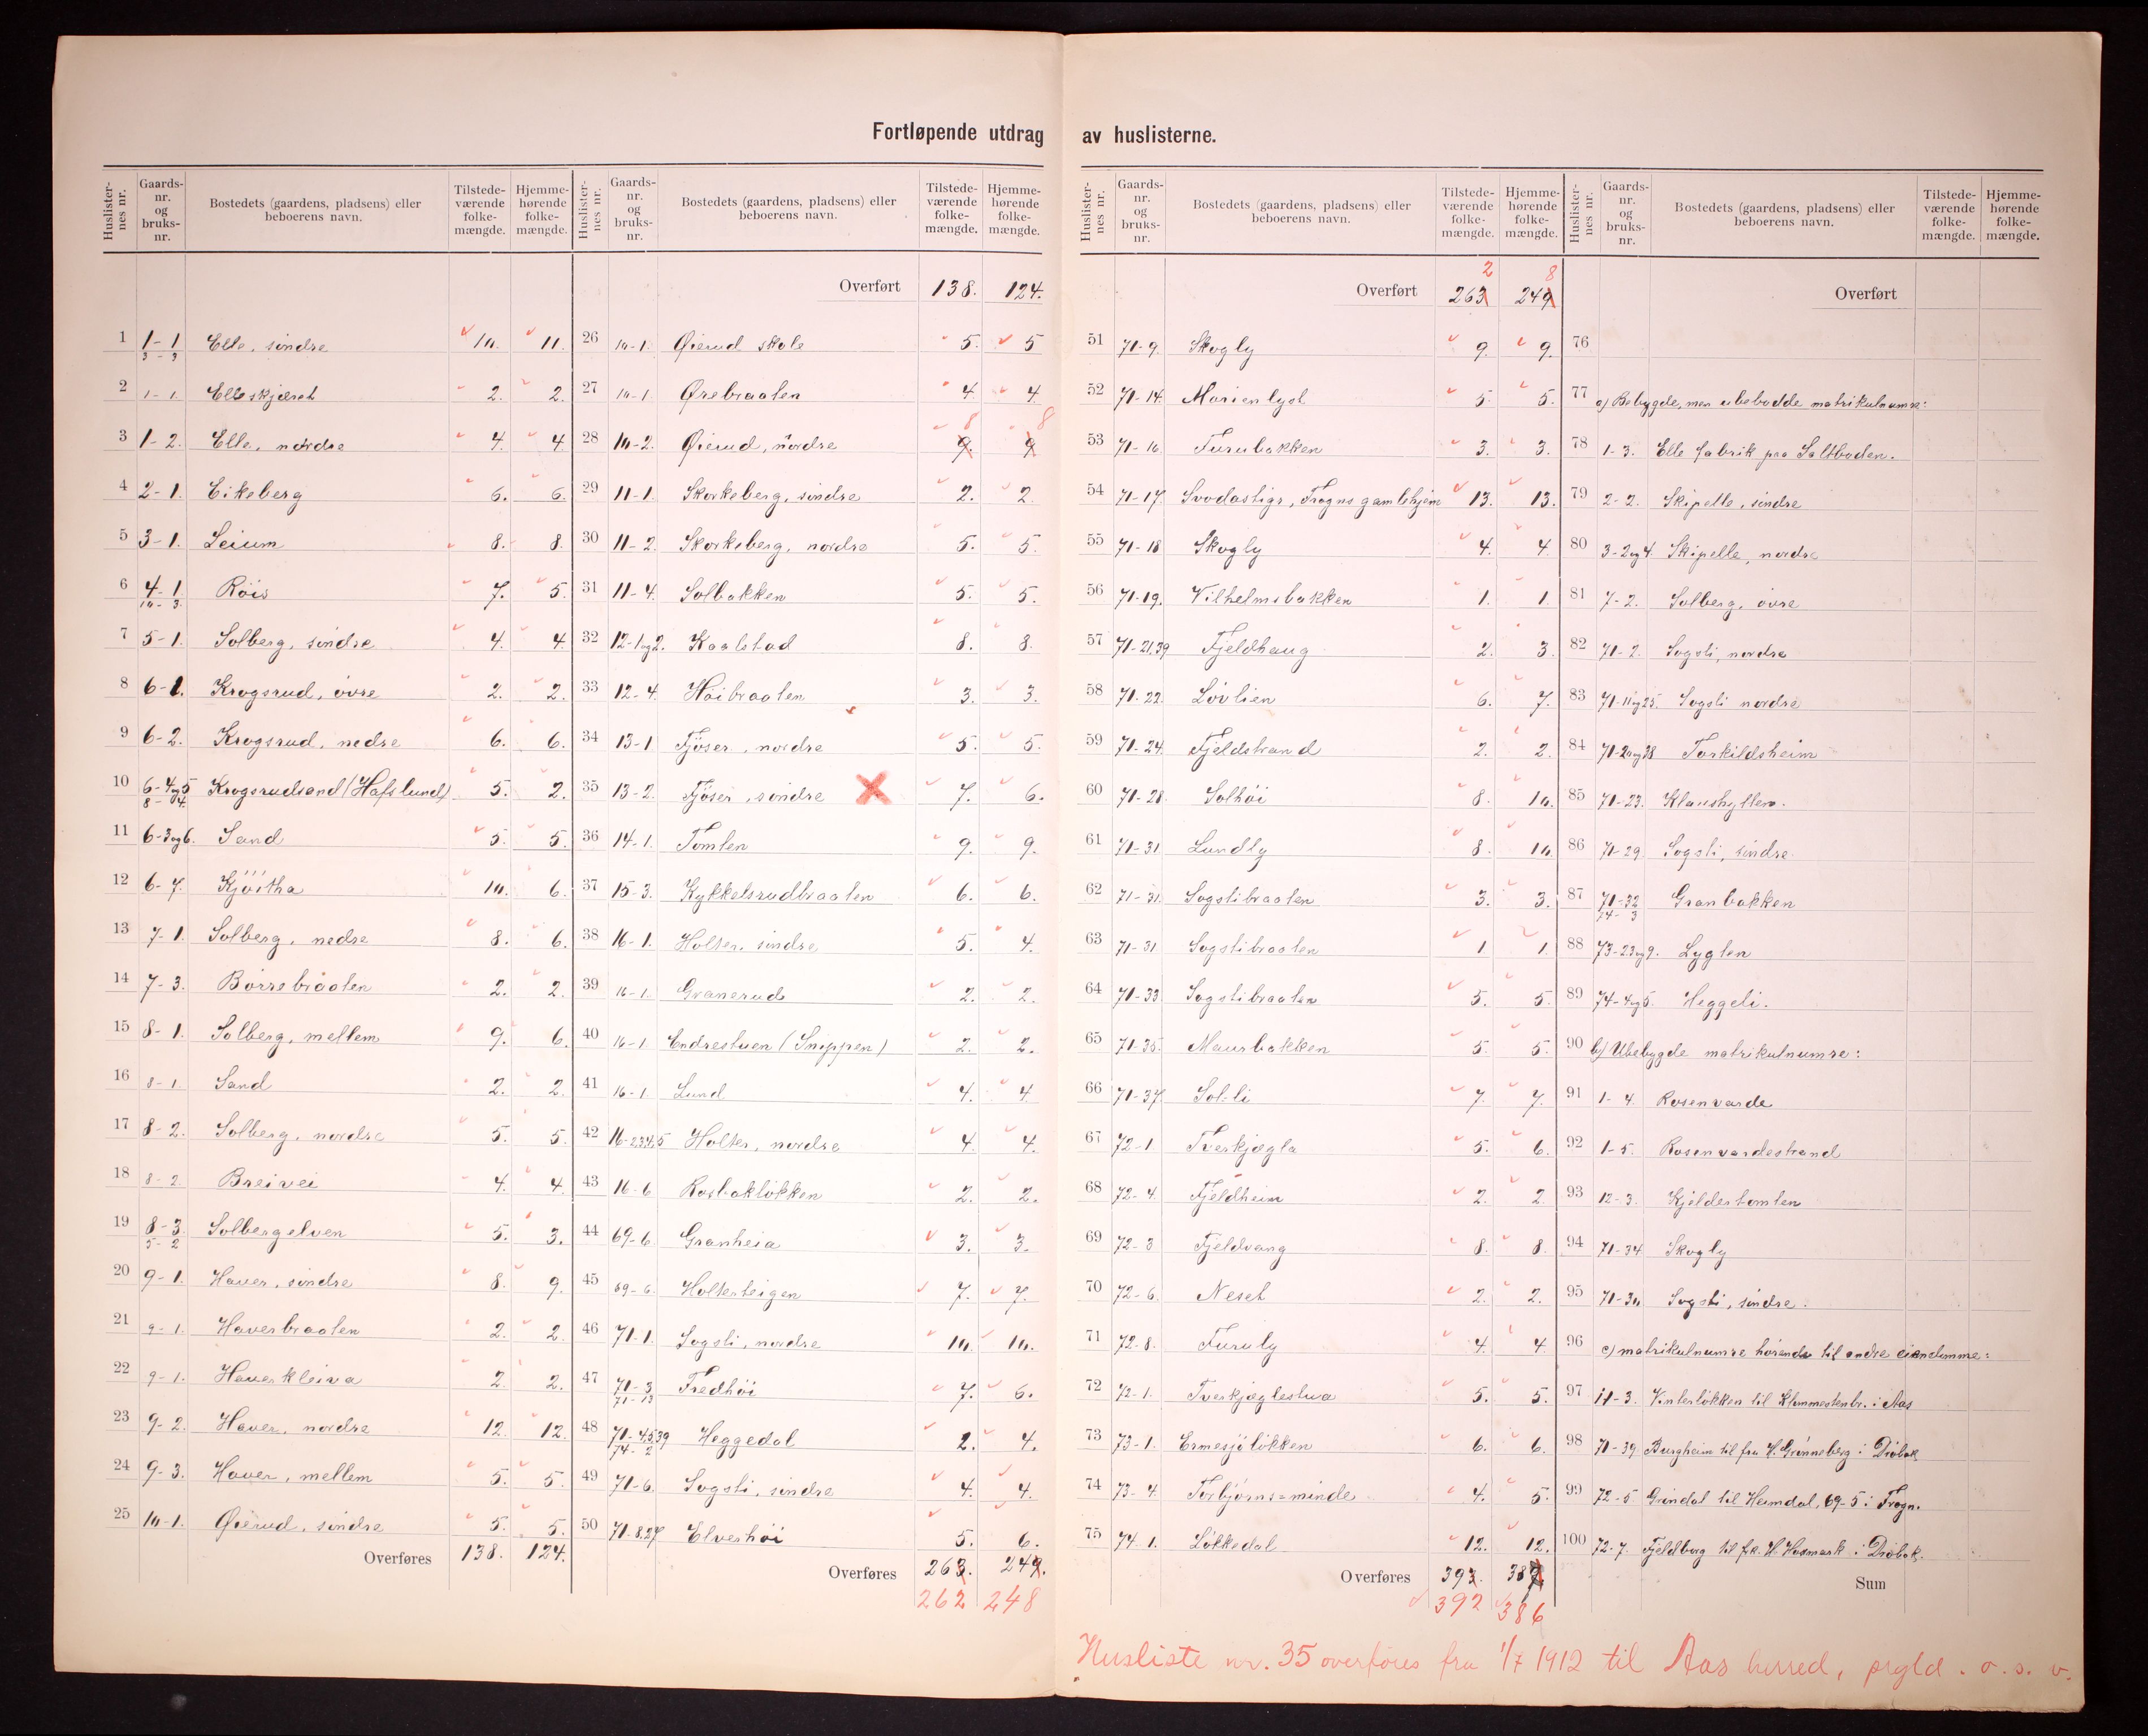 Fortløpende utdrag av huslisterne.
Huslisternes nr. Gaardsnr. og bruksnr. Bostedets (gaardens, pladsens) eller beboerens navn. Tilstedeværende folkemængde. Hjemmehørende folkemængde.
1 1-1 3-3 Elle, söndre 10. 11.
2 1-1. Elleskjæret 2. 2.
3 1-2. Elle, nordre 4. 4.
4 2-1. Eikeberg 6. 6.
5 3-1. Leium 8. 8.
6 4-1 10-3. Röis 7. 5.
7 5-1. Solberg, söndre 4. 4.
8 6-1. Krogsrud, övre 2. 2.
9 6-2. Krogsrud, nedre 6. 6.
10 6-4og5 8-4. Krogsrudsand (Hafslund) 5. 2.
11 6-3og6. Sand 5. 5.
12 6-7. Kjöitha 10. 6.
13 7-1. Solberg, nedre 8. 6.
14 7-3. Börrebraaten 2. 2.
15 8-1. Solberg, mellem 9. 6.
16 8-1 Sand 2. 2.
17 8-2. Solberg, nordre 5. 5.
18 8-2 Breivei 4. 4.
19 8-3. 5-2 Solbergelven 5. 3.
20 9-1. Haver, söndre 8. 9.
21 9-1. Haverbraaten 2. 2.
22 9-1. Haverkleiva 2. 2.
23 9-2. Haver, nordre 12. 12.
24 9-3. Haver, mellem 5. 5.
25 10-1. Øierud, söndre 5. 5.
Overføres 138. 124.
Huslisternes nr. Gaardsnr. og bruksnr. Bostedets (gaardens, pladsens) eller beboerens navn. Tilstedeværende folkemængde. Hjemmehørende folkemængde.
Overført 138. 124.
26 10-1. Øierud skole 5. 5
27 10-1. Ørebraaten 4. 4
8 8
28 10-2. Øierud, nordre 9. 9
29 11-1. Skorkeberg, söndre 2. 2.
30 11-2. Skorkeberg, nordre 5. 5.
31 11-4. Solbakken 5. 5.
32 12-1og2. Kaalstad 8. 8.
33 12-4. Höibraaten 3. 3.
34 13-1 Fjöser, nordre 5. 5.
35 13-2. Fjöser, söndre 7. 6.
36 14-1. Tomten 9. 9.
37 15-3. Kykkelsrudbraaten 6. 6.
38 16-1. Holter, söndre 5. 4.
39 16-1. Granerud 2. 2.
40 16-1 Endrestuen (Snippen) 2. 2.
41 16-1. Lund 4. 4
42 16-2,3,4,5 Holter, nordre 4. 4.
43 16-6 Rosbaklökken 2. 2.
44 69-6 Granheia 3. 3.
45 69-6. Holterteigen 7. 7.
46 71-1. Sogsti, nordre 10. 10.
47 71-3 71-13 Fredhöi 7. 6.
48 71-4,5,39 74-2 Heggedal 2. 4.
49 71-6. Sogsti, söndre 4. 4.
50 71-8,27 Elverhöi 5. 6.
Overføres 263. 249.
262 248
Huslisternes nr. Gaardsnr. og bruksnr. Bostedets (gaardens, pladsens) eller beboerens navn. Tilstedeværende folkemængde. Hjemmehørende folkemængde.
2 8
Overført 263 249
51 71-9. Skogly 9. 9.
52 71-14. Marienlyst 5. 5.
53 71-16. Furubakken 3. 3.
54 71-17. Svodastigr, Frogns gamlehjem 13. 13.
55 71-18 Skogly 4. 4
56 71-19. Vilhelmsbakken 1. 1.
57 71-21,39 Fjeldhaug 2. 3.
58 71-22. Lövlien 6. 7.
59 71-24. Fjeldstrand 2. 2.
60 71-28. Solhöi 8. 10.
61 71-31. Lundby 8. 10.
62 71-31. Sogstibraaten 3. 3.
63 71-31 Sogstibraaten 1. 1.
64 71-33 Sogstibraaten 5. 5.
65 71-35. Maurbakken 5. 5.
66 71-37 Sol-li 7. 7.
67 72-1 Tverkjægla 5. 6.
68 72-4. Fjeldheim 2. 2.
69 72-3 Fjeldvang 8. 8.
70 72-6. Neset 2. 2.
71 72-8. Furuly 4. 4.
72 72-1. Tverkjæglestua 5. 5.
73 73-1. Ermesjölökken 6. 6.
74 73-4. Torbjörns=minde 4. 5.
75 74-1. Lökkedal 12. 12.
Overføres 393. 387
392 386
Huslisternes nr. Gaardsnr. og bruksnr. Bostedets (gaardens, pladsens) eller beboerens navn. Tilstedeværende folkemængde. Hjemmehørende folkemængde.
Overført
76
77 a) Bebygde, men ubebodde matrikulnumre:
78 1-3. Elle fabrik paa Saltboden.
79 2-2. Skipelle, söndre
80 3-2og4. Skipelle, nordre
81 7-2. Solberg, övre
82 71-2. Sogsti, nordre
83 71-11og25. Sogsti nordre
84 71-20og38 Torkildsheim
85 71-23. Klaushytten.
86 71-29. Sogsti, söndre.
87 71-32 74-3 Granbakken
88 73-2,3og9. Lygten
89 74-4og5. Heggeli.
90 b) Ubebygde matrikulnumre:
91 1-4. Rosenvarde
92 1-5. Rosenvardestrand
93 12-3. Kjeldertomten
94 71-34 Skogly
95 71-30 Sogsti, söndre.
96 c) matrikulnumre hörende til andre eiendomme:
97 11-3. Vinterlökken til Klommestenbr. i Aas
98 71-39 Burgheim til fru H. Grönneberg i Dröbak
99 72-5 Gröndal til Heimdal, 69-5 i Frogn.
100 72-7. Fjeldborg til fr. H. Hosmark i Dröbak.
Sum
Husliste nr. 35 overföres fra 1/7 1912 til Aas herred, prgld. o. s. v.